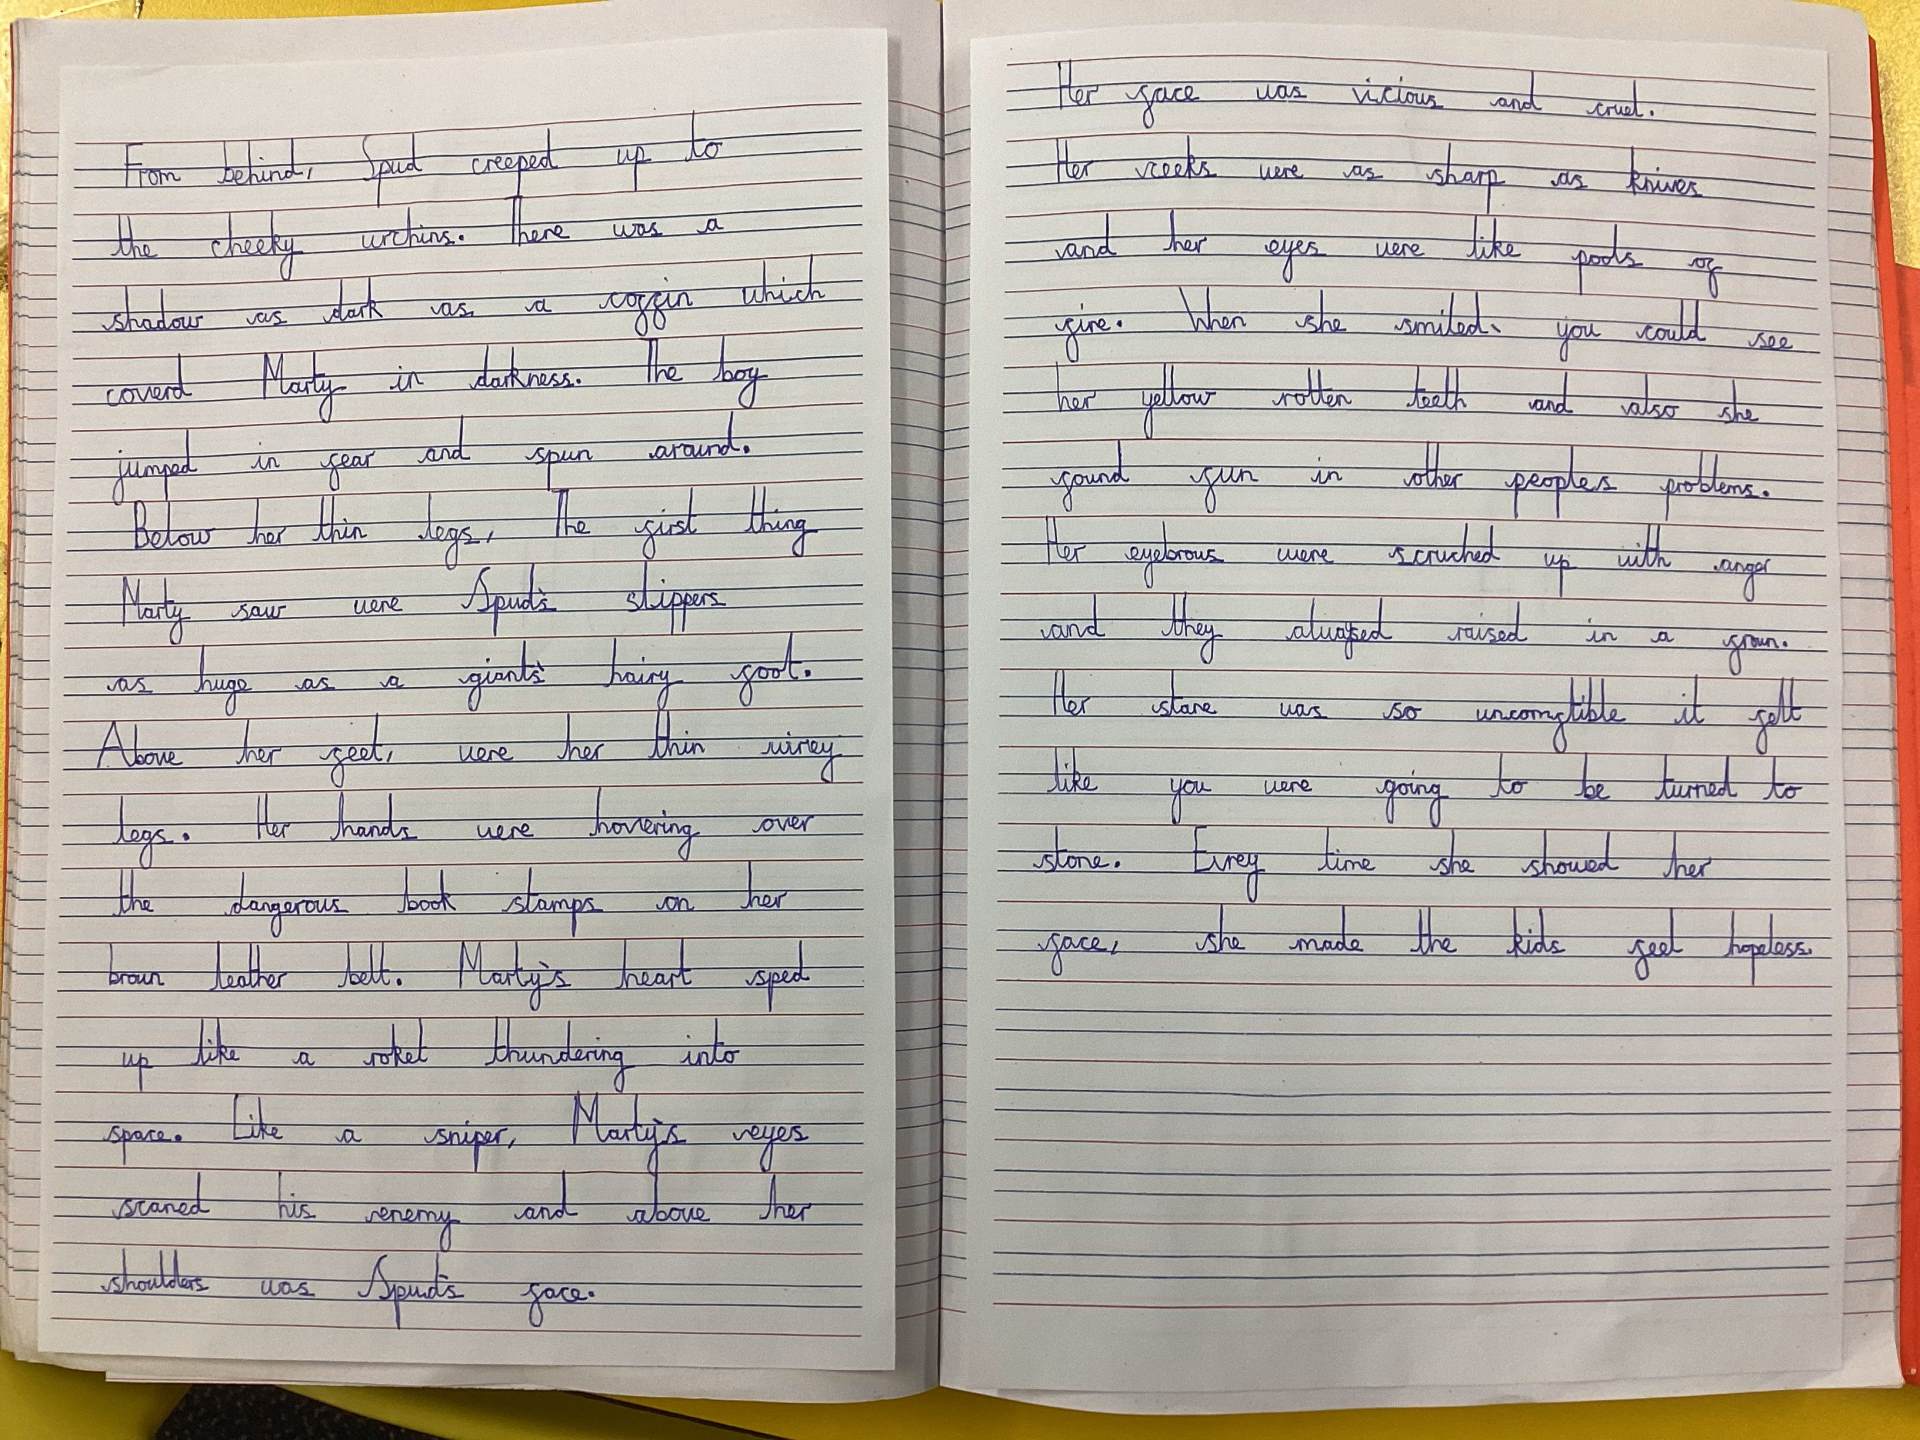 From behind, Spud creeped up to
the cheeky urchins. There was a
shadow as dark as a coffin which
coverd Marty in darkness. The boy
jumped in fear and spun around.
Below her thin legs, The first thing
Marty saw were Spud's slippers
as huge as a giant's hairy foot.
Above her feet, were her thin wirey
legs. Her hands were hovering over
the dangerous book stamps on her
brown leather belt. Marty's heart sped
up like a roket thundering into
space. Like a sniper, Marty's eyes
scaned his enemy and above her
shoulders was Spud's face.
Her face was vicious and cruel.
Her ceeks were as sharp as knives
and her eyes were like pools of
fire. When she smiled, you could see
her yellow rotten teeth and also she
found fun in other peoples problems.
Her eyebrows were scruched up with anger
and they alwaysed raised in a frown.
Her stare was so uncomftible it felt
like you were going to be turned to
stone. Evrey time she showed her
face, she made the kids feel hopeless.